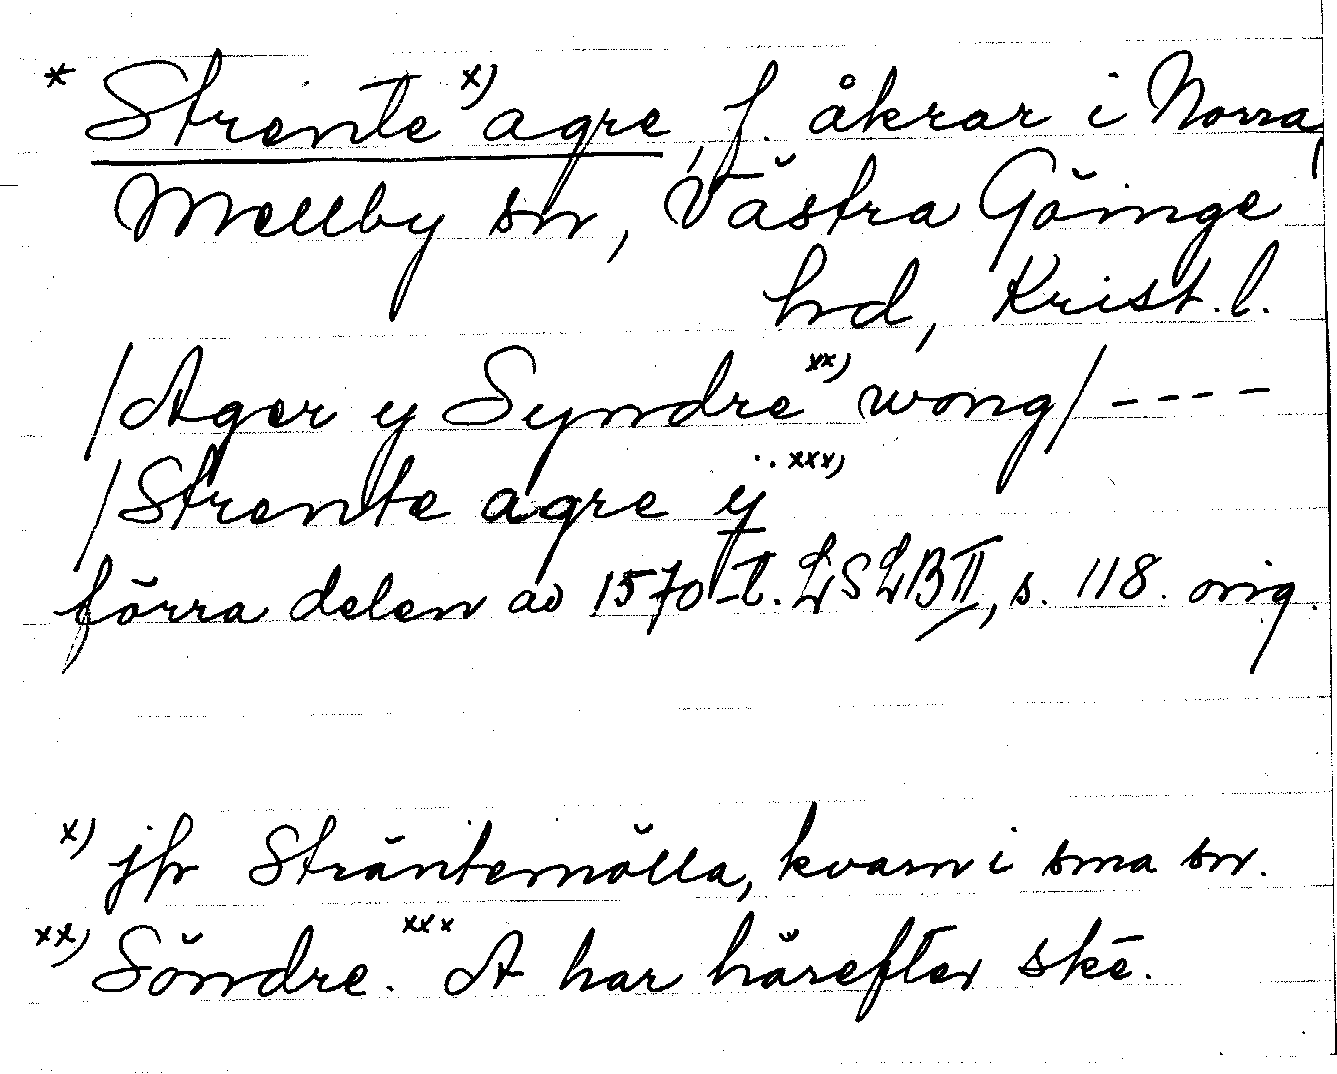 * Strente x) agre, f. åkrar i Norra
Mellby sn, Västra Göinge
hd, Krist. l.
/Ager y Syndre xx) wong/ ----
/Strente agre ÿ xxx)
förra delen av 1570-t. LSLB II, s. 118. orig.
x) jfr Sträntemölla, kvarn i sma sn.
xx) Söndre. xxx A har härefter ske.